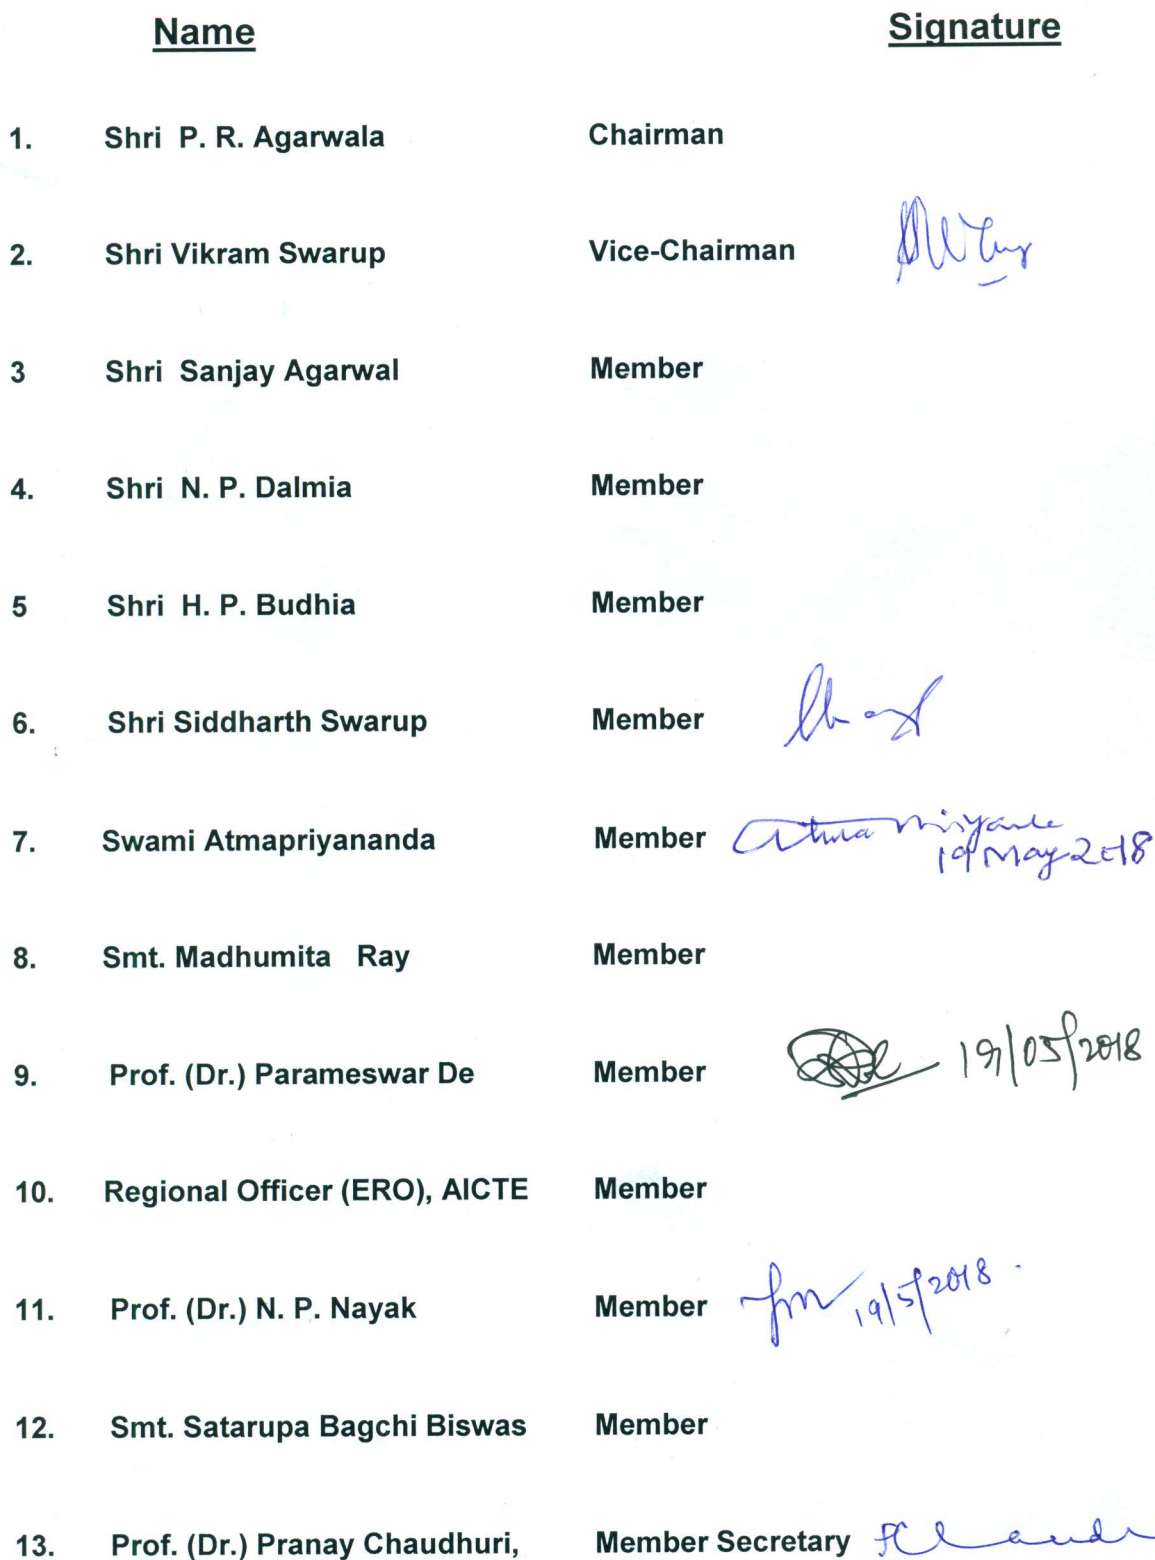 Name Signature
1. Shri P. R. Agarwala Chairman
2. Shri Vikram Swarup Vice-Chairman
3 Shri Sanjay Agarwal Member
4. Shri N. P. Dalmia Member
5 Shri H. P. Budhia Member
6. Shri Siddharth Swarup Member
7. Swami Atmapriyananda Member
19 May 2018
8. Smt. Madhumita Ray Member
9. Prof. (Dr.) Parameswar De Member 19/05/2018
10. Regional Officer (ERO), AICTE Member
11. Prof. (Dr.) N. P. Nayak Member 19/5/2018
12. Smt. Satarupa Bagchi Biswas Member
13. Prof. (Dr.) Pranay Chaudhuri, Member Secretary